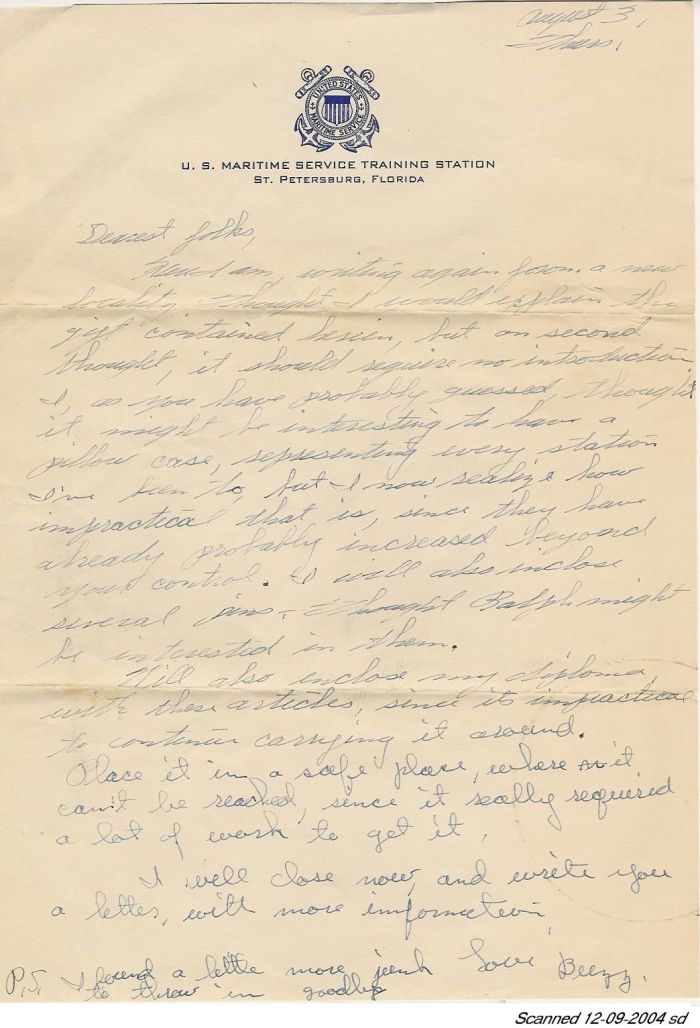 August 3,
Thurs,
UNITED STATES
MARITIME SERVICE
U. S. MARITIME SERVICE TRAINING STATION
ST. PETERSBURG, FLORIDA
Dearest folks,
Here I am, writing again from a new
locality. Thought I would explain the
gift contained herein, but on second
thought, it should require no introduction
I, as you have probably guessed, thought
it might be interesting to have a
pillow case, representing every station
I've been to, but I now realize how
impractical that is, since they have
already probably increased beyond
your control. I will also inclose
several pins - Thought Ralph might
be interested in them.
Will also enclose my diploma
with these articles, since its impractical
to continue carrying it around.
Place it in a safe place, where it
can't be reached, since it really required
a lot of work to get it.
I will close now, and write you
a letter, with more information,
Love
P.S. I found a little more junk
to throw in goodbye
Scanned 12-09-2004 sd